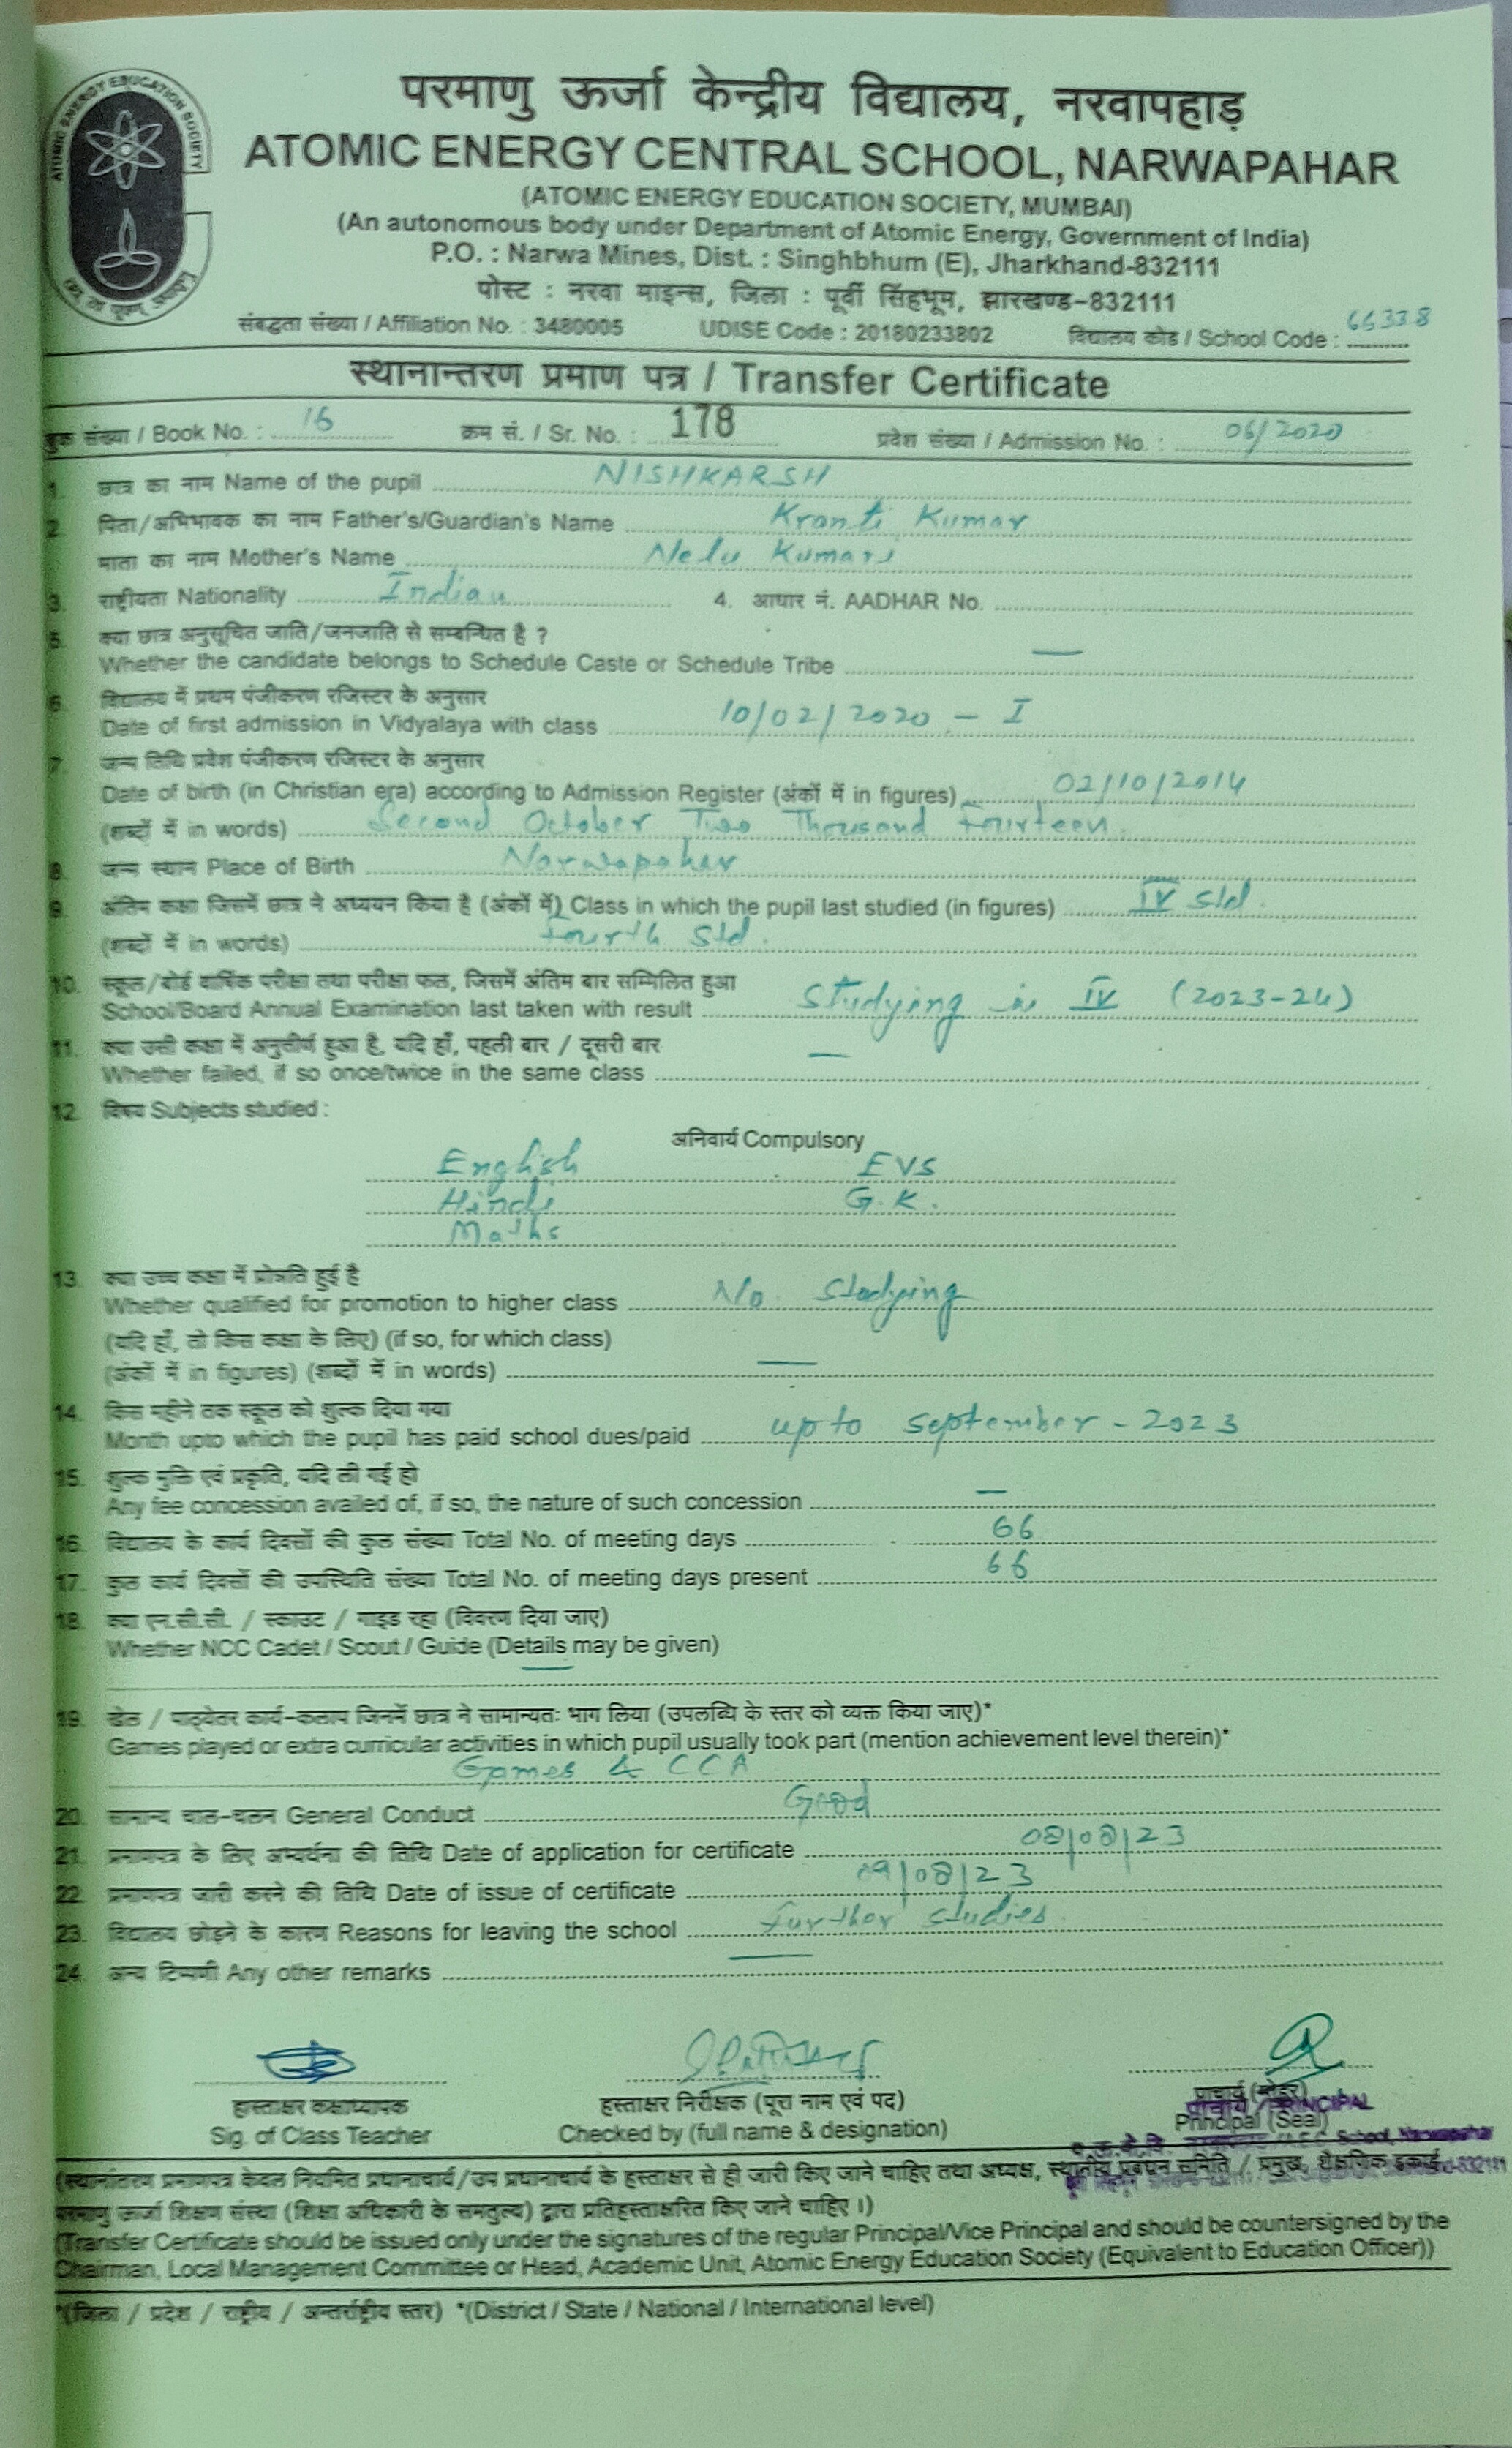 ATOMIC ENERGY EDUCATION SOCIETY
परमाणु ऊर्जा केन्द्रीय विद्यालय, नरवापहाड़
ATOMIC ENERGY CENTRAL SCHOOL, NARWAPAHAR
(ATOMIC ENERGY EDUCATION SOCIETY, MUMBAI)
(An autonomous body under Department of Atomic Energy, Government of India)
P.O. : Narwa Mines, Dist. : Singhbhum (E), Jharkhand-832111
पोस्ट : नरवा माइन्स, जिला : पूर्वी सिंहभूम, झारखण्ड-832111
संबद्धता संख्या / Affiliation No. : 3480005 UDISE Code : 20180233802 विद्यालय कोड / School Code : 66338
स्थानान्तरण प्रमाण पत्र / Transfer Certificate
बुक संख्या / Book No. : 16 क्रम सं. / Sr. No. : 178 प्रवेश संख्या / Admission No. : 06/2020
1. छात्र का नाम Name of the pupil NISHKARSH
2. पिता/अभिभावक का नाम Father's/Guardian's Name Kranti Kumar
माता का नाम Mother's Name Nelu Kumari
3. राष्ट्रीयता Nationality Indian 4. आधार नं. AADHAR No.
5. क्या छात्र अनुसूचित जाति/जनजाति से सम्बन्धित है ?
Whether the candidate belongs to Schedule Caste or Schedule Tribe —
6. विद्यालय में प्रथम पंजीकरण रजिस्टर के अनुसार
Date of first admission in Vidyalaya with class 10/02/2020 - I
7. जन्म तिथि प्रवेश पंजीकरण रजिस्टर के अनुसार
Date of birth (in Christian era) according to Admission Register (अंकों में in figures) 02/10/2014
(शब्दों में in words) Second October Two Thousand fourteen.
8. जन्म स्थान Place of Birth Narwapahar
9. अंतिम कक्षा जिसमें छात्र ने अध्ययन किया है (अंकों में) Class in which the pupil last studied (in figures) IV Std.
(शब्दों में in words) fourth Std.
10. स्कूल/बोर्ड वार्षिक परीक्षा तथा परीक्षा फल, जिसमें अंतिम बार सम्मिलित हुआ
School/Board Annual Examination last taken with result Studying in IV (2023-24)
11. क्या उसी कक्षा में अनुत्तीर्ण हुआ है, यदि हाँ, पहली बार / दूसरी बार
Whether failed, if so once/twice in the same class —
12. विषय Subjects studied :
अनिवार्य Compulsory
English EVS
Hindi G.K.
Maths
13. क्या उच्च कक्षा में प्रोन्नति हुई है
Whether qualified for promotion to higher class No. Studying
(यदि हाँ, तो किस कक्षा के लिए) (if so, for which class)
(अंकों में in figures) (शब्दों में in words) —
14. किस महीने तक स्कूल को शुल्क दिया गया
Month upto which the pupil has paid school dues/paid upto september - 2023
15. शुल्क मुक्ति एवं प्रकृति, यदि ली गई हो
Any fee concession availed of, if so, the nature of such concession —
16. विद्यालय के कार्य दिवसों की कुल संख्या Total No. of meeting days 66
17. कुल कार्य दिवसों की उपस्थिति संख्या Total No. of meeting days present 66
18. क्या एन.सी.सी. / स्काउट / गाइड रहा (विवरण दिया जाए)
Whether NCC Cadet / Scout / Guide (Details may be given)
—
19. खेल / पाठ्येतर कार्य-कलाप जिनमें छात्र ने सामान्यतः भाग लिया (उपलब्धि के स्तर को व्यक्त किया जाए)*
Games played or extra curricular activities in which pupil usually took part (mention achievement level therein)*
Games & CCA
20. सामान्य चाल-चलन General Conduct Good
21. प्रमाणपत्र के लिए अभ्यर्थना की तिथि Date of application for certificate 08/08/23
22. प्रमाणपत्र जारी करने की तिथि Date of issue of certificate 09/08/23
23. विद्यालय छोड़ने के कारण Reasons for leaving the school further studies.
24. अन्य टिप्पणी Any other remarks —
हस्ताक्षर कक्षाध्यापक हस्ताक्षर निरीक्षक (पूरा नाम एवं पद) प्राचार्य (मोहर)
प्राचार्य / PRINCIPAL
Sig. of Class Teacher Checked by (full name & designation) Principal (Seal)
(स्थानांतरण प्रमाणपत्र केवल नियमित प्रधानाचार्य/उप प्रधानाचार्य के हस्ताक्षर से ही जारी किए जाने चाहिए तथा अध्यक्ष, स्थानीय प्रबंधन समिति / प्रमुख, शैक्षणिक इकाई,
परमाणु ऊर्जा शिक्षण संस्था (शिक्षा अधिकारी के समतुल्य) द्वारा प्रतिहस्ताक्षरित किए जाने चाहिए ।)
(Transfer Certificate should be issued only under the signatures of the regular Principal/Vice Principal and should be countersigned by the
Chairman, Local Management Committee or Head, Academic Unit, Atomic Energy Education Society (Equivalent to Education Officer))
*(जिला / प्रदेश / राष्ट्रीय / अन्तर्राष्ट्रीय स्तर) *(District / State / National / International level)